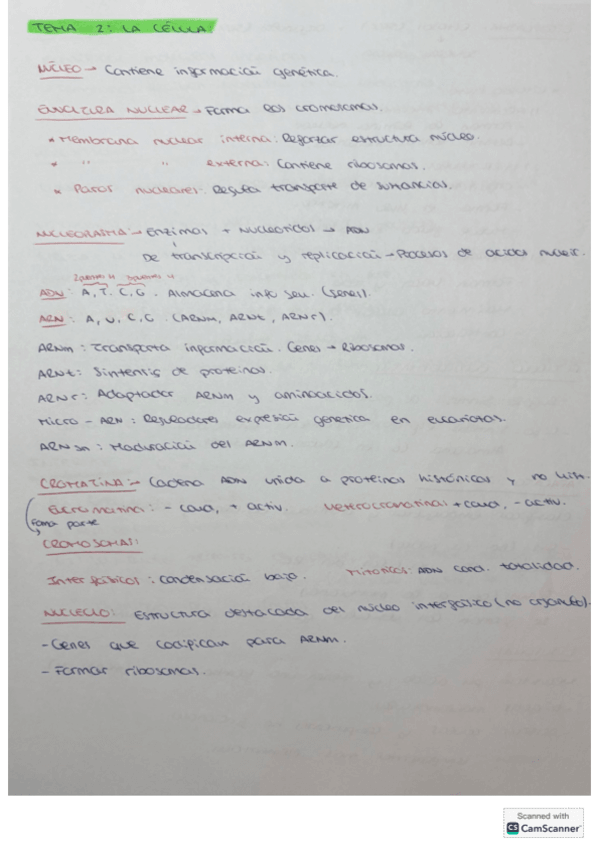 TEMA 2: LA CÉLULA
NÚCLEO → Contiene información genética.
ENVOLTURA NUCLEAR → Forma los cromosomas.
* Membrana nuclear interna: Reforzar estructura núcleo.
* " " externa: Contiene ribosomas.
* Poros nucleares: Regula transporte de sustancias.
NUCLEOPLASMA → Enzimas + Nucleótidos → ADN
De transcripción y replicación → Procesos de ácidos nucleic.
ADN: A, T, C, G. Almacena info gen. (genes).
ARN: A, U, C, G (ARNm, ARNt, ARNr).
ARNm: Transporta información. Genes → Ribosomas.
ARNt: Síntesis de proteínas.
ARNr: Adaptador ARNm y aminoácidos.
Micro-ARN: Reguladores expresión genética en eucariotas.
ARNsn: Maduración del ARNm.
CROMATINA → Cadena ADN unida a proteínas histónicas y no hist.
Eucromatina: - cond, + activ. Heterocromatina: + cond, - activ.
forma parte
CROMOSOMAS:
Interfásicos: condensación baja. Mitóticos: ADN cond. totalidad.
NUCLEOLO: Estructura destacada del núcleo interfásico (no orgánulo).
- Genes que codifican para ARNm.
- Formar ribosomas.
Scanned with
CS CamScanner